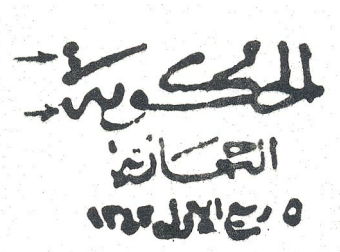 الحكومة
الحجازية
٥ ربيع الاول ١٣٤٣